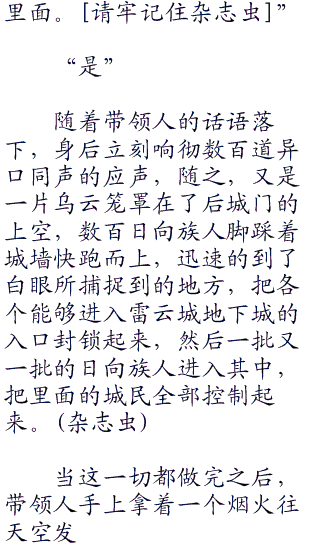 里面。[请牢记住杂志虫]”
“是”
随着带领人的话语落
下，身后立刻响彻数百道异
口同声的应声，随之，又是
一片乌云笼罩在了后城门的
上空，数百日向族人脚踩着
城墙快跑而上，迅速的到了
白眼所捕捉到的地方，把各
个能够进入雷云城地下城的
入口封锁起来，然后一批又
一批的日向族人进入其中，
把里面的城民全部控制起
来。(杂志虫)
当这一切都做完之后，
带领人手上拿着一个烟火往
天空发